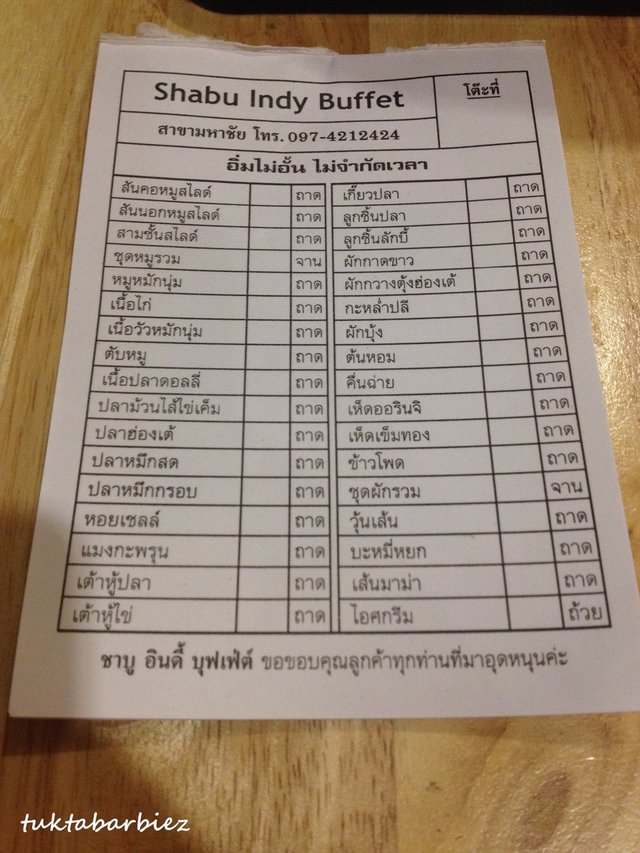 Shabu Indy Buffet
โต๊ะที่
สาขามหาชัย โทร. 097-4212424
อิ่มไม่อั้น ไม่จำกัดเวลา
สันคอหมูสไลด์ ถาด เกี๊ยวปลา ถาด
สันนอกหมูสไลด์ ถาด ลูกชิ้นปลา ถาด
สามชั้นสไลด์ ถาด ลูกชิ้นลักบี้ ถาด
ชุดหมูรวม จาน ผักกาดขาว ถาด
หมูหมักนุ่ม ถาด ผักกวางตุ้งฮ่องเต้ ถาด
เนื้อไก่ ถาด กะหล่ำปลี ถาด
เนื้อวัวหมักนุ่ม ถาด ผักบุ้ง ถาด
ตับหมู ถาด ต้นหอม ถาด
เนื้อปลาดอลลี่ ถาด คื่นฉ่าย ถาด
ปลาม้วนไส้ไข่เค็ม ถาด เห็ดออรินจิ ถาด
ปลาฮ่องเต้ ถาด เห็ดเข็มทอง ถาด
ปลาหมึกสด ถาด ข้าวโพด ถาด
ปลาหมึกกรอบ ถาด ชุดผักรวม จาน
หอยเชลล์ ถาด วุ้นเส้น ถาด
แมงกะพรุน ถาด บะหมี่หยก ถาด
เต้าหู้ปลา ถาด เส้นมาม่า ถาด
เต้าหู้ไข่ ถาด ไอศกรีม ถ้วย
ชาบู อินดี้ บุฟเฟ่ต์ ขอขอบคุณลูกค้าทุกท่านที่มาอุดหนุนค่ะ
tuktabarbiez